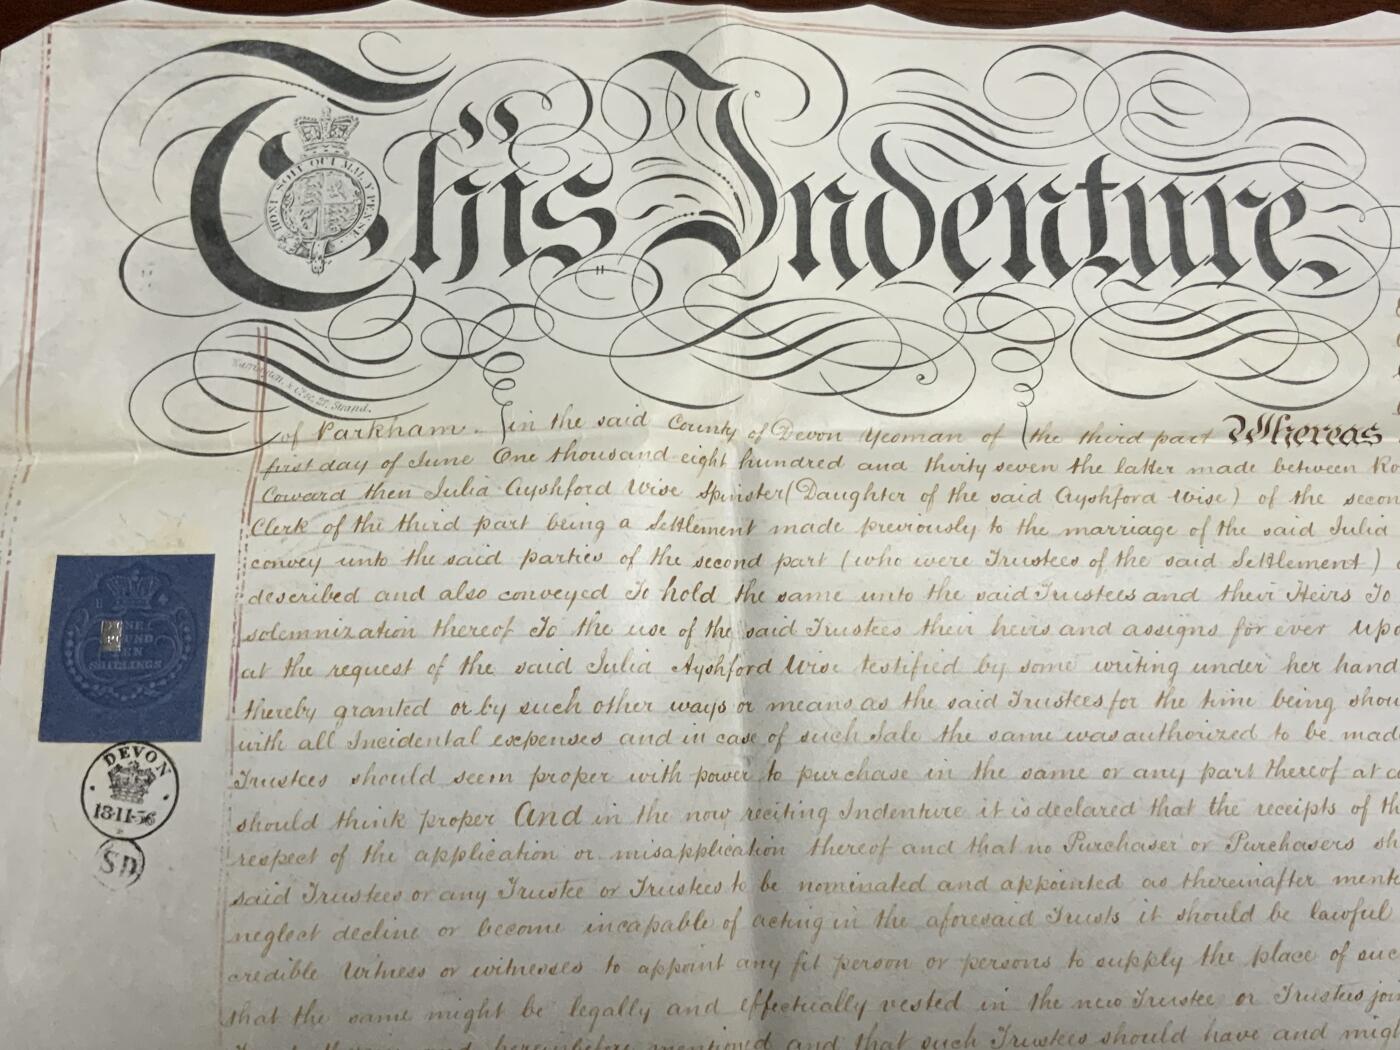 This Indenture
HONI SOIT QUI MAL Y PENSE
27, Strand.
of Parkham in the said County of Devon Yeoman of the third part Whereas
first day of June One thousand eight hundred and thirty seven the latter made between
Coward then Julia Ayshford Wise Spinster (Daughter of the said Ayshford Wise) of the secon
Clerk of the third part being a Settlement made previously to the marriage of the said Julia
convey unto the said parties of the second part (who were Trustees of the said Settlement)
described and also conveyed To hold the same unto the said Trustees and their Heirs To
solemnization thereof To the use of the said Trustees their heirs and assigns for ever Upo
at the request of the said Julia Ayshford Wise testified by some writing under her hand
thereby granted or by such other ways or means as the said Trustees for the time being shou
with all Incidental expenses and in case of such Sale the same was authorized to be made
Trustees should seem proper with power to purchase in the same or any part thereof at a
should think proper And in the now reciting Indenture it is declared that the receipts of th
respect of the application or misapplication thereof and that no Purchaser or Purchasers sh
said Trustees or any Trustee or Trustees to be nominated and appointed as thereinafter ment
neglect decline or become incapable of acting in the aforesaid Trusts it should be lawful
credible Witness or witnesses to appoint any fit person or persons to supply the place of suc
that the same might be legally and effectually vested in the new Trustee or Trustees joi
hereinbefore mentioned and that such Trustees should have and migh
ONE
POUND
TEN
SHILLINGS
DEVON
18-11-56
SD